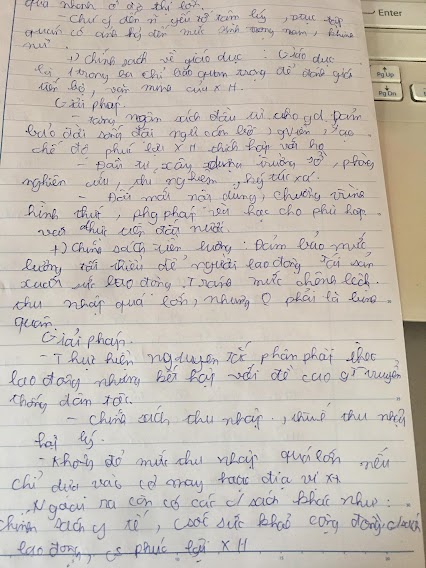 quá nhanh ở đô thị lớn.
- Chú ý đến n~ yếu tố tâm lý, xtục tập
quán có ảnh hg đến mức sinh trong nam, khinh
nữ.
+) Chính sách về giáo dục: Giáo dục
là, 1 trong ba chỉ báo quan trọng để đánh giá
tiến bộ, văn minh của XH.
Giải pháp.
- Tăng ngân sách đầu tư cho gd, Đảm
bảo đời sống đội ngũ cán bộ, gviên, có
chế độ phúc lợi XH thích hợp với họ
- Đầu tư xây dựng trường sở, phòng
nghiên cứu, thí nghiệm, ký túc xá.
- Đổi mới nội dung, chương trình
hình thức, phg pháp dạy học cho phù hợp
với thực tiễn đất nước.
+) Chính sách tiền lương: Đảm bảo mức
lương tối thiểu để người lao động tái sản
xuất sức lao động, Tránh mức chênh lệch
thu nhập quá lớn, nhưng 0 phải là bình
quân.
Giải pháp.
- Thực hiện nguyên tắc phân phối theo
lao động nhưng kết hợp với đề cao gt truyền
thống dân tộc.
- Chính sách thu nhập, thuế thu nhập
hợp lý.
- Không để mức thu nhập quá lớn nếu
chỉ dựa vào cơ may hoặc địa vị XH
Ngoài ra còn có các c/sách khác như:
Chính sách y tế, csóc sức khoẻ cộng đồng, c/sách
lao động, cs phúc lợi XH
Enter
Pg Up
Pg Dn